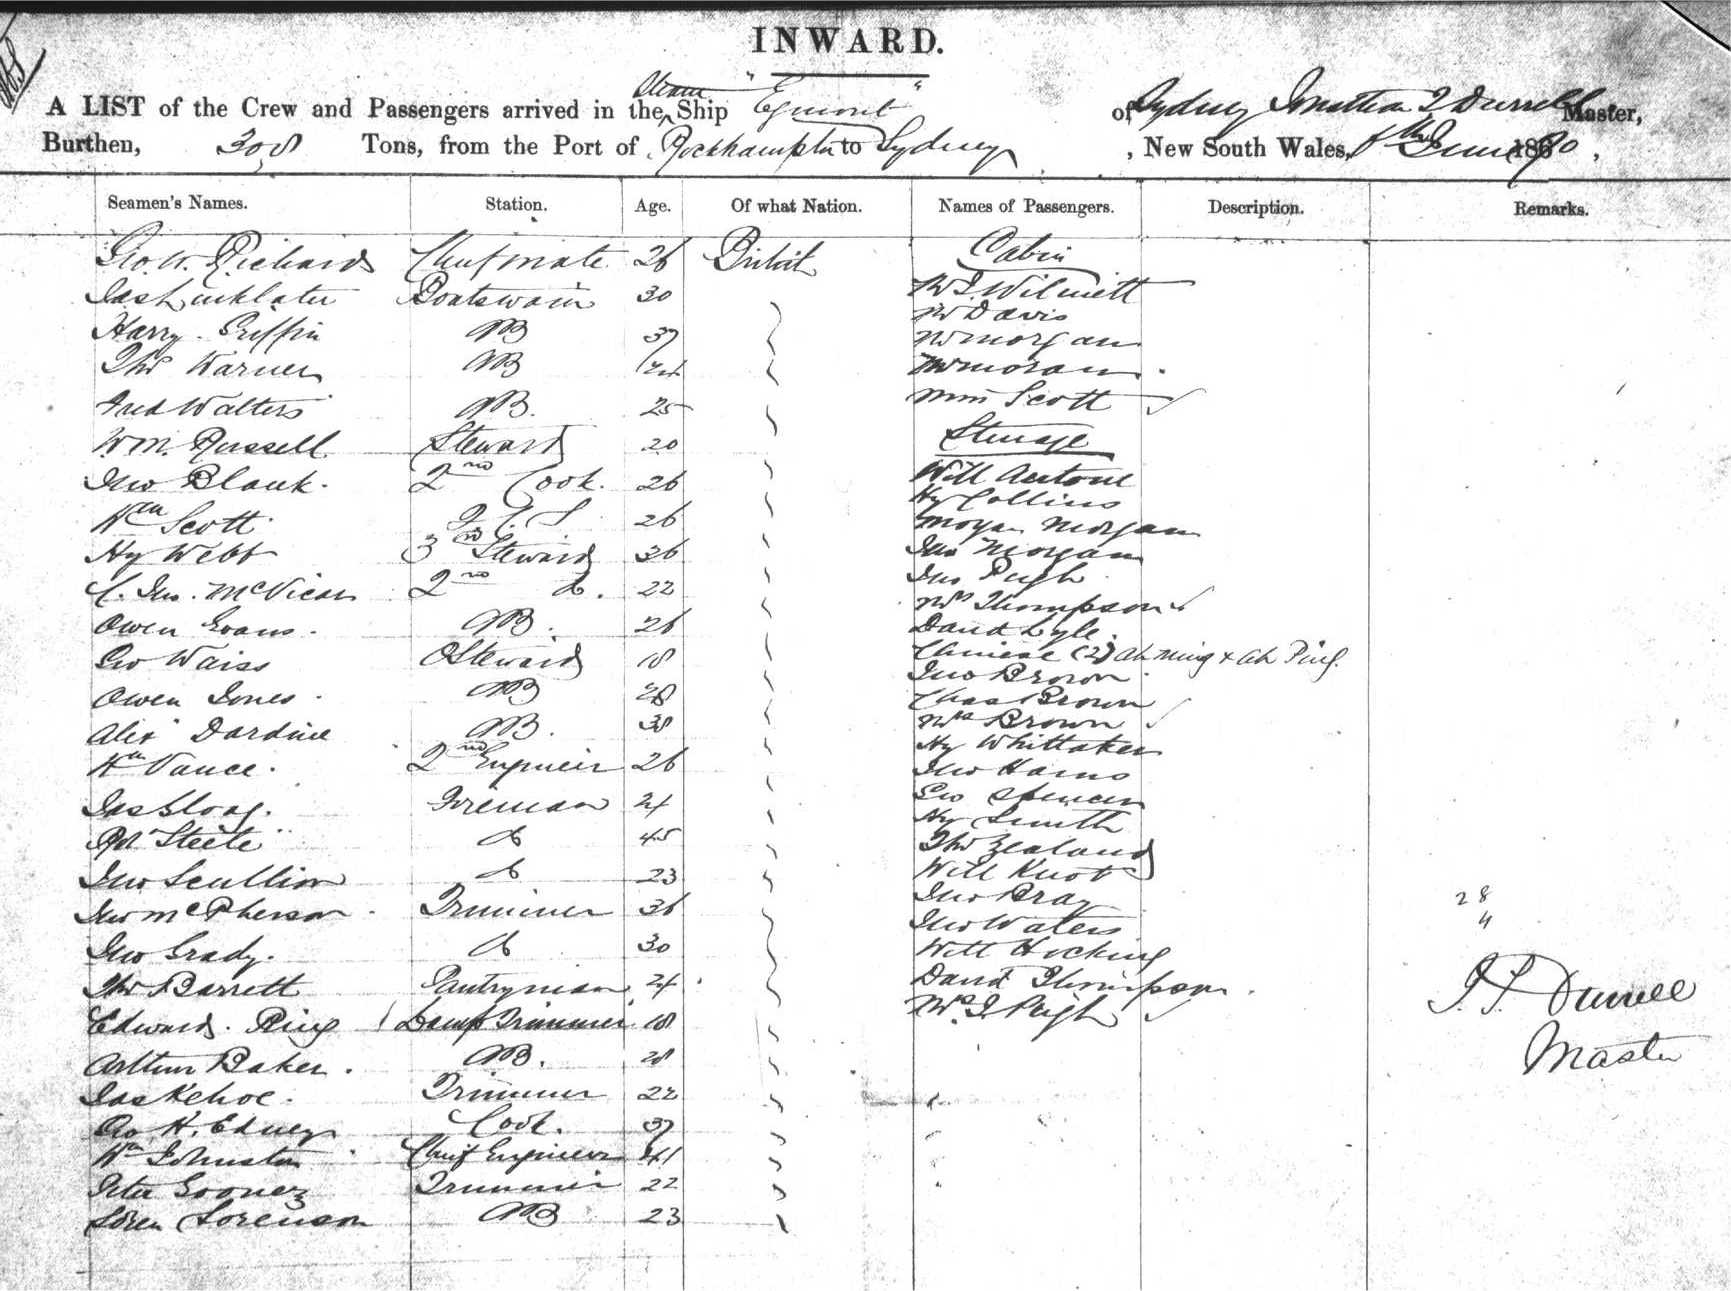 INWARD.
A LIST of the Crew and Passengers arrived in the Steam Ship "Egmont" of Sydney Jonathan Durrell Master,
Burthen, 308 Tons, from the Port of Rockhampton to Sydney, New South Wales, June 18
Seamen's Names. Station. Age. Of what Nation. Names of Passengers. Description. Remarks.
Geo. W. Richards Chief mate 26 British Cabin
Jas Linklater Boatswain 30
Harry Griffin AB 37
Thos Warner AB
Fred Walters AB. 25
Wm. Russell Steward 20
Jno Blank. 2nd Cook. 26
Wm Scott 26
Hy Webb 3rd Steward 36
Jno. McVicar 2nd Do. 22
Owen Evans. AB. 26
Geo Waiss Steward 18
Owen Jones AB 28
Alex Dardine AB. 38
Wm Vance. 2nd Engineer 26
Jas Gloag. Fireman 24
Rt Steele Do 45
Jno Scullion Do 23
Jno McPherson Trimmer 36
Jno Grady. Do 30
Thos Barrett Pantryman 24
Edward Ring Trimmer 18
Arthur Baker. AB. 28
Jas Kehoe. Trimmer 22
Geo H. Edney Cook. 37
Wm Johnston Chief Engineer 41
Peter Trimmer 22
Soren Sorenson AB 23
Mr Wilmett
Mr Davis
Mr Morgan
Mr Moran
Miss Scott
Steerage
Will
Hy Collins
Morgan Morgan
Jno Morgan
Jno Pugh
Mrs Thompson
David Lyle.
Chinese (2) Ah Ming & Ah Ping.
Jno Brown
Chas Brown
Mrs Brown
Hy Whittaker
Jno Harris
Geo Spencer
Hy Smith
Thos Zealand
Will Knot
Jno Bray
Jno Waters
Will Hocking
David Thompson
Mrs J Pugh
28
"
J. J. Durrell
Master